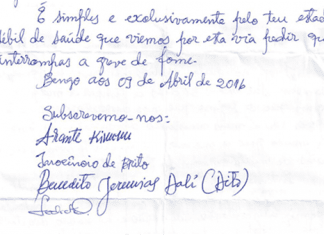 É simples e exclusivamente pelo teu estad
ébil de saúde que viemos por esta via pedir qu
interrompas a greve de fome.
Bengo aos 09 de Abril de 2016
Subscrevemo-nos:
Arante Kivuvu
Inocêncio de Brito
Benedito Jeremias Dalí (Dito)